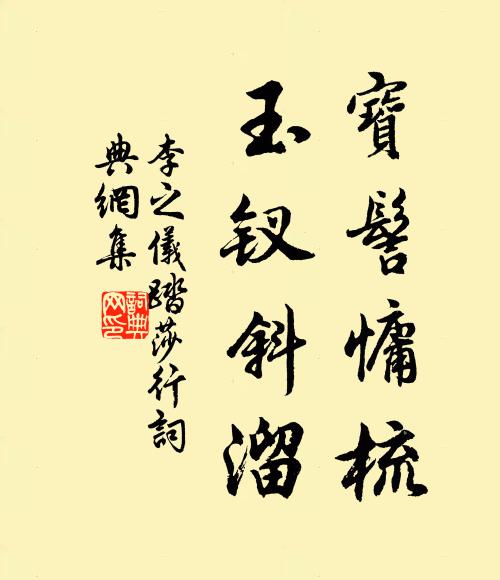 寶髻慵梳
玉釵斜溜
李之儀踏莎行詞
典網集
詞典
网印